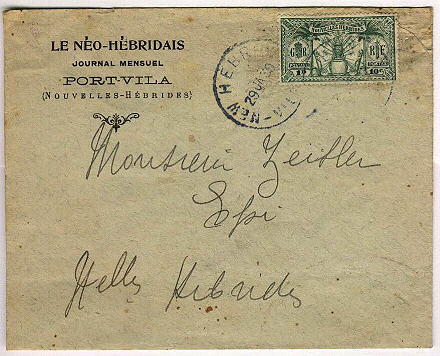 LE NÉO-HÉBRIDAIS
JOURNAL MENSUEL
PORT-VILA
(NOUVELLES-HÉBRIDES)
NEW HEBR
29 JA 30
VIL
NOUVELLES-HÉBRIDES
G R
R F
1ᵈ
10ᶜ
Monsieur Zeitler
Epi
Nelles Hébrides